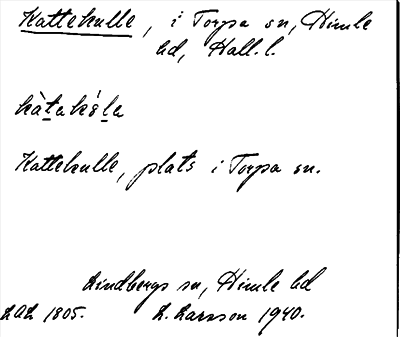 Kattekulle, i Torpa sn, Himle
hd, Hall.l.
kàtakúla
Kattekulle, plats i Torpa sn.
Lindbergs sn, Himle hd
LAL 1805. L. Larsson 1940.